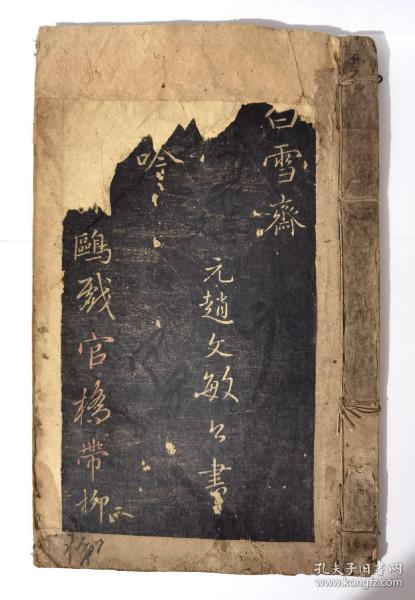 白雪齋
元趙文敏公書
吟
鷗戏官橋帶柳
孔夫子旧书网
www.kongfz.com